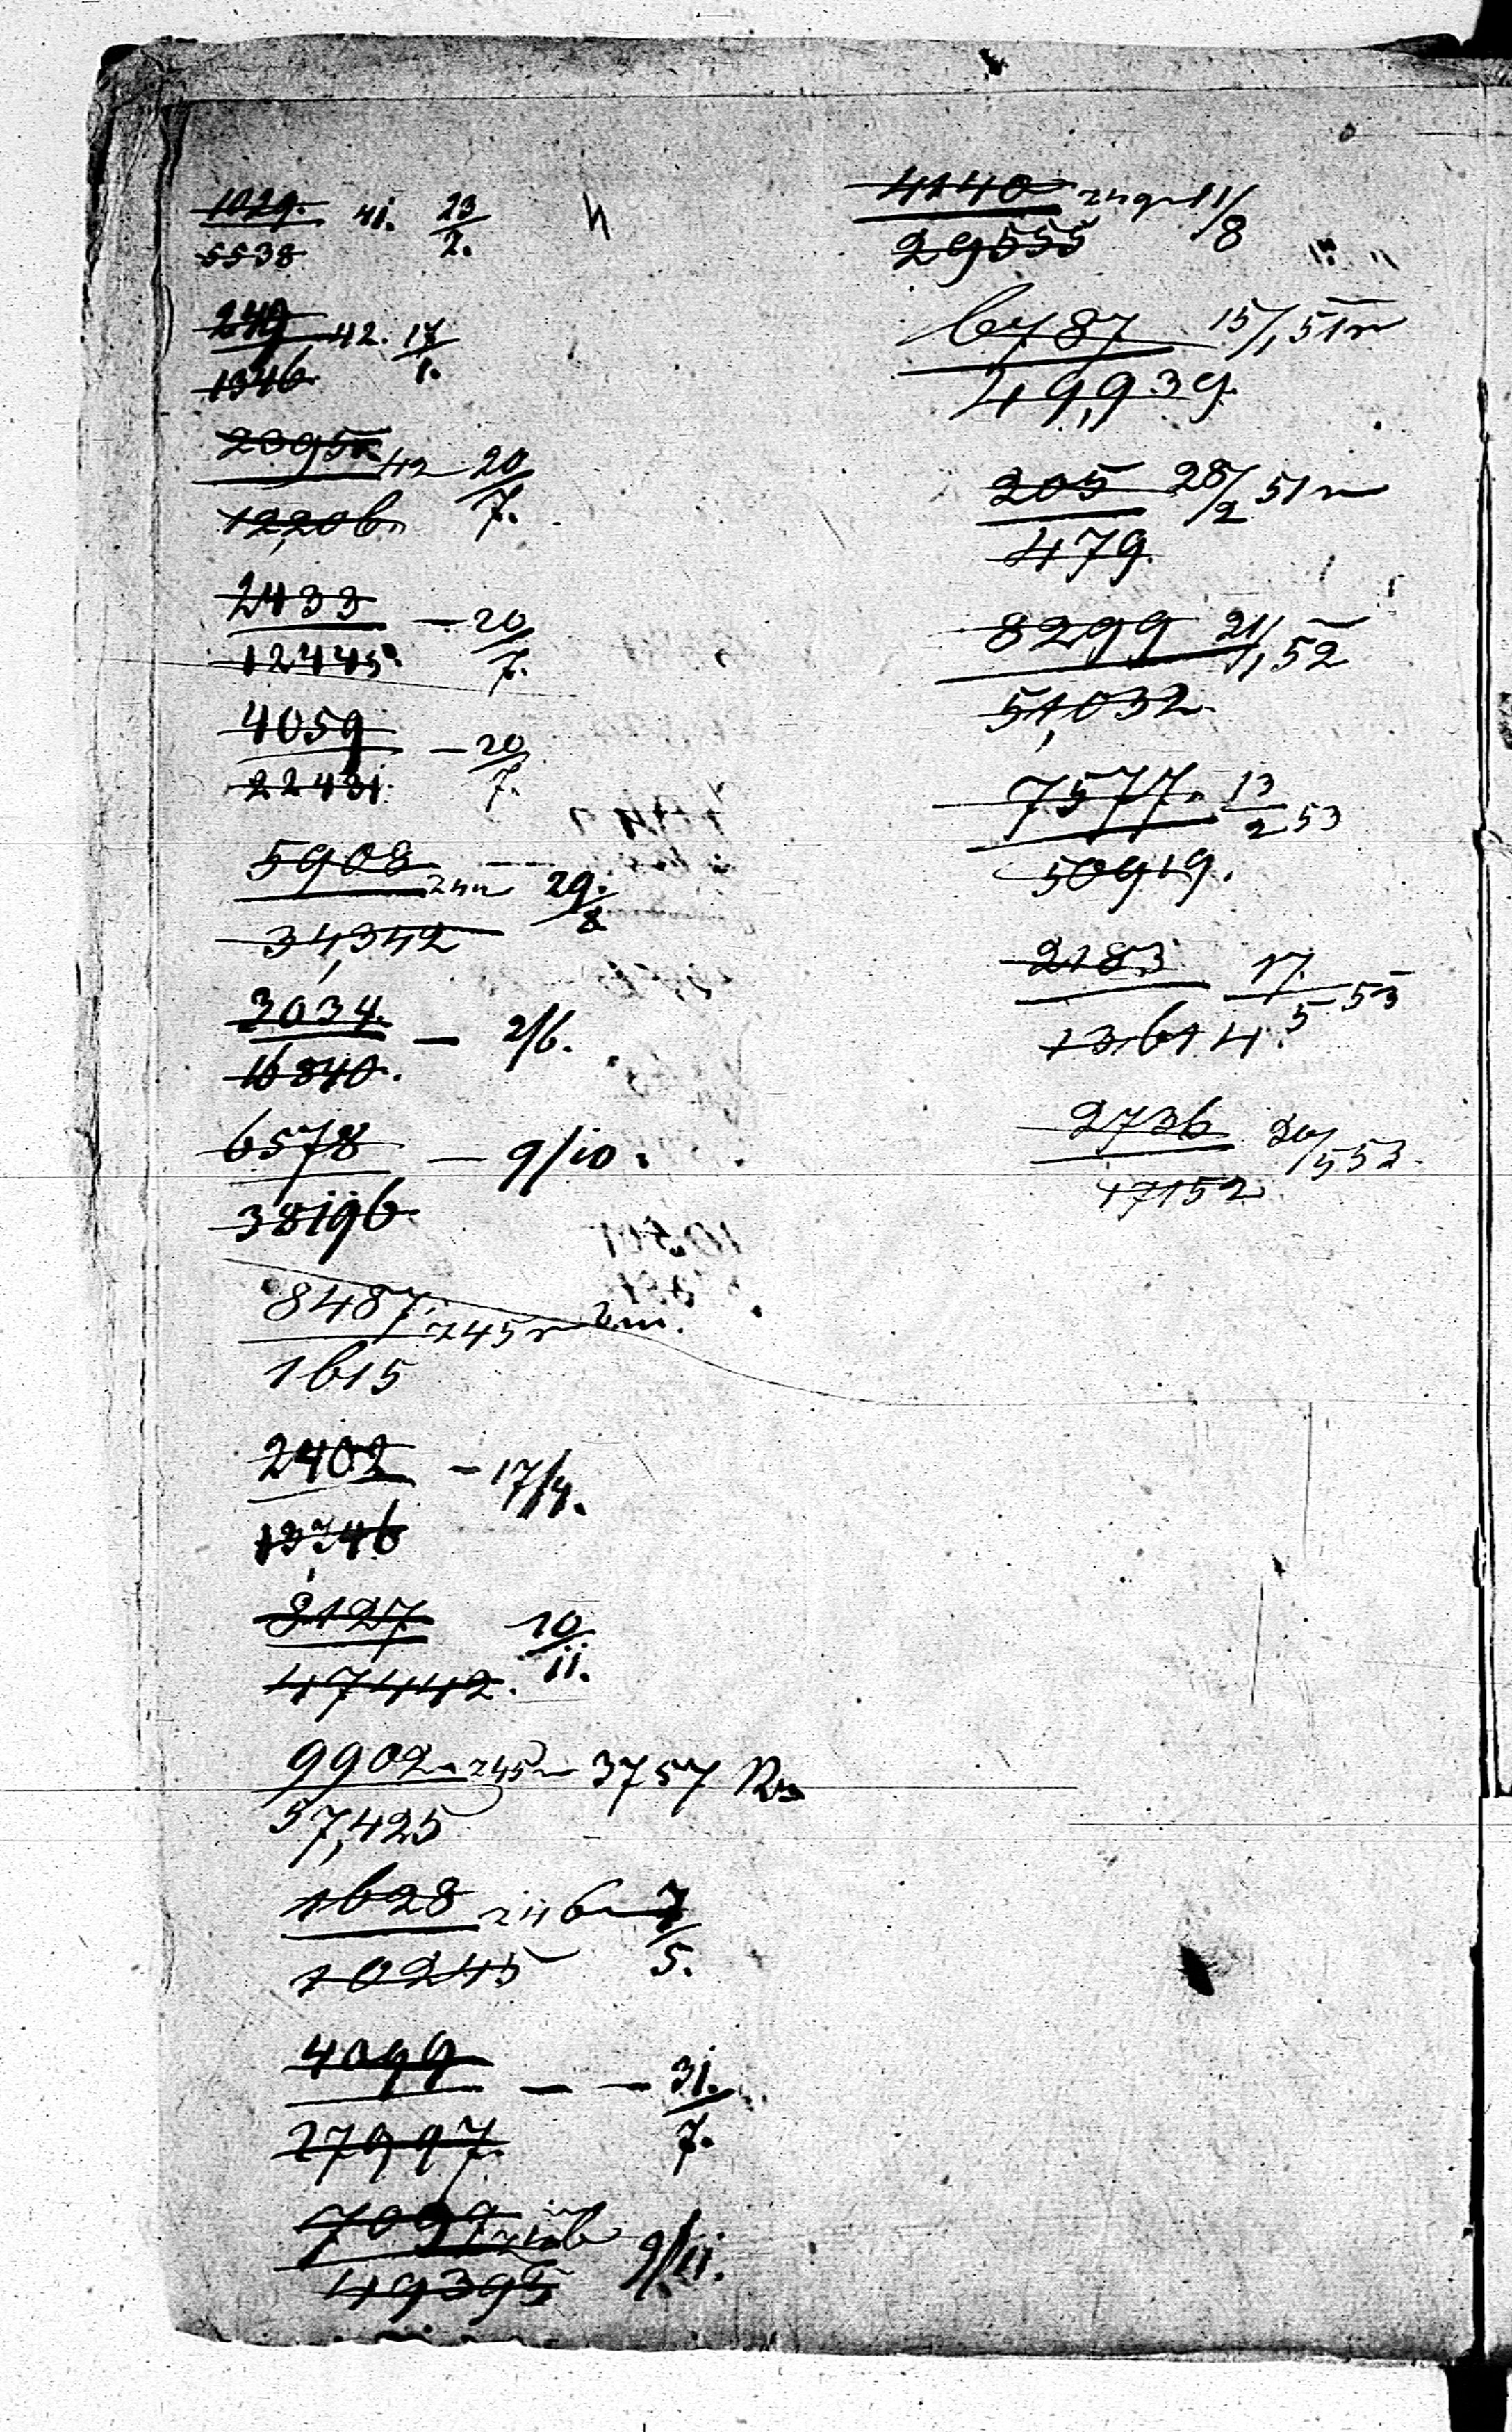 1029. 41. 23/2.
5538
249 42. 17/1.
1346
2395 42 20/7.
12,206
2433 — 20/7.
12445
4059 — 20/7.
22431
5908 29./8
34,342
3034. — 2/6.
16840.
6578 — 9/10.
38196
8487
1615
2402 — 17/4.
13746
8127 10/11.
47442.
9902 3757
57,425
1628 7/5.
10245
4099 — — 31./7.
27997.
7099 9/11.
49395
4140 11/8
29555
6787 15/1 51
49,939.
205 28/2 51
479.
8299 21/1 52
51,032
7577 13/2 53
50919.
2183 17/5 53
13614.
2736 20/5 53.
17152